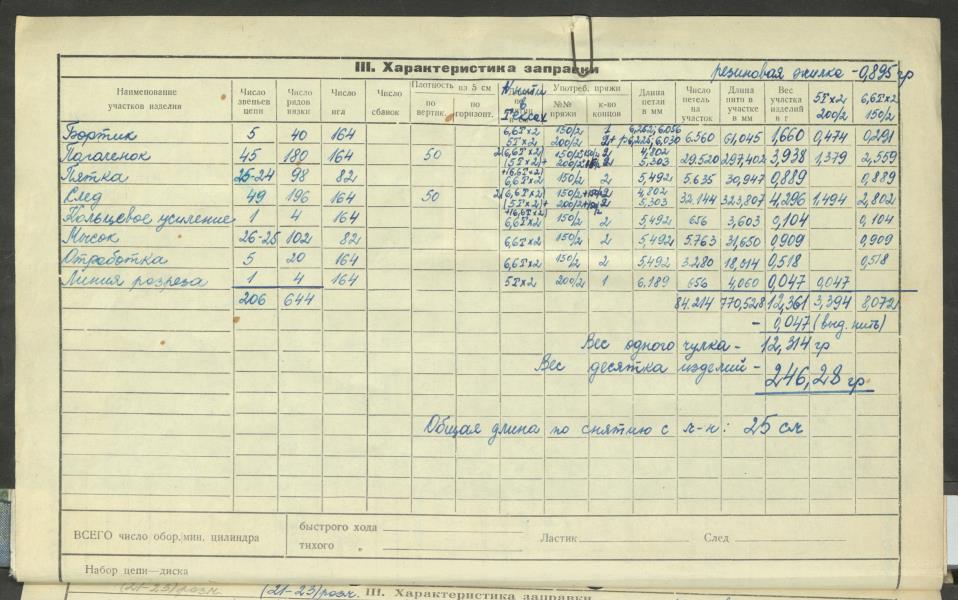 III. Характеристика заправки
резиновая жилка - 0,895 гр
Наименование участков изделия | Число звеньев цепи | Число рядов вязки | Число игл | Число сбавок | Плотность из 5 см по вертик. | по горизонт. | № нити в Тексах | Употреб. пряжи №№ пряжи | к-во концов | Длина петли в мм | Число петель на участок | Длина нити в участке в мм | Вес участка изделий в г | 5Тх2 200/2 | 6,6Тх2 150/2
Бортик 5 40 164 6,6Тх2 5Тх2 150/2 200/2 6.560 61,045 1,660 0,474 0,291
Паголенок 45 180 164 50 4,802 5,303 29.520 297,402 3,938 1,379 2,559
Пятка 25-24 98 82 6,6Тх2 150/2 2 5,492 5.635 30,947 0,889 0,889
След 49 196 164 50 4,802 5,303 32.144 323,807 4,296 1,494 2,802
Кольцевое усиление 1 4 164 6,6Тх2 150/2 2 5,492 656 3,603 0,104 0,104
Мысок 26-25 102 82 6,6Тх2 150/2 2 5,492 5.763 31,650 0,909 0,909
Отработка 5 20 164 6,6Тх2 150/2 2 5,492 3.280 18,014 0,518 0,518
Линия разреза 1 4 164 5Тх2 200/2 1 6,189 656 4,060 0,047 0,047
206 644 84.214 770,528 12,361 3,394 8,072
- 0,047 (выд. нить)
Вес одного чулка - 12,314 гр
Вес десятка изделий - 246,28 гр
Общая длина по снятию с м-н: 25 см
ВСЕГО число обор. мин. цилиндра
быстрого хода
тихого
Ластик
След
Набор цепи—диска
(21-23)разм. (21-23)разм. III. Характеристика заправки